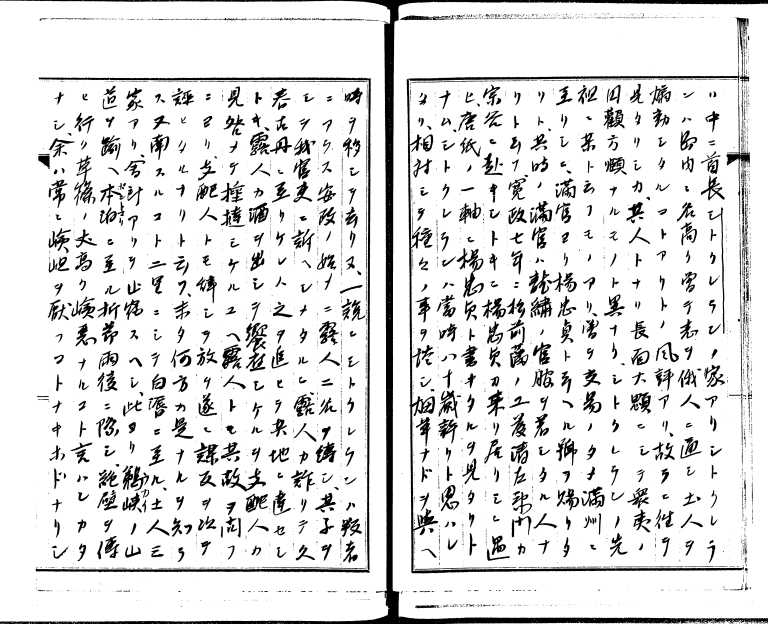 ハ中ニ酋長シトクレランノ家アリシトクレラ
ンハ島内ニ名高リ曽テ志ヲ俄人ニ通シ土人ヲ
煽動シタルコトアリトノ風評アリ、故ラニ往テ
見タリシカ、其人トナリ長面大顋ニシテ衆夷ノ
円顴方頤ナルモノト異ナリ、シトクレランノ先
祖ニ某ト云フモノアリ、曽テ交易ノタメ満州ニ
至リシニ、満官ヨリ楊忠貞ト云ヘル号ヲ賜リタ
リト、其時ノ満官ハ龍繍ノ官服ヲ着シタル人ナ
リト云フ寛政七年ニ松前藩ノ工藤清左衛門カ
宗谷ニ赴キシトキニ楊忠貞カ来リ居リシニ遇
ヒ、唐紙ノ一軸ニ楊忠貞ト書キタルヲ見タリト
ナム、シトクレランハ当時八十歳許リト思ハレ
タリ、相対シテ種々ノ事ヲ談シ、烟草ナドヲ与ヘ
時ヲ移シテ去リヌ、一説ニシトクレランハ叛者
ニアラス安政ノ始メニ露人二名ヲ縛シ、其子ヲ
シテ我官吏ニ訴ヘシメタルニ露人カ詐リテ久
春古丹ニ至リケレハ之ヲ追ヒテ其地ニ達セシ
トキ、露人カ酒ヲ出シテ饗応シケルヲ支配人カ
見咎メテ捶撻シケルユヘ露人トモ其故ヲ問フ
ニヨリ、支配人トモ縛シヲ放リ遂ニ謀反ヲ以テ
誣ヒタルナリト云フ未タ何方カ是ナルヲ知ラ
ス又南スルコト二里ニシテ白唇ニ至ル、土人三
家アリ、会計アリテ止宿スヘシ、此ヨリ鵜峡ノ山
道ヲ踰ヘ本泊ニ至ル折節雨後ニ際シ絶壁ヲ伝
ヒ行リ草篠ノ丈高リ嶮悪ナルコト言ハンカタ
ナシ、余ハ常ニ嶮岨ヲ厭フコトナキホドナリシ